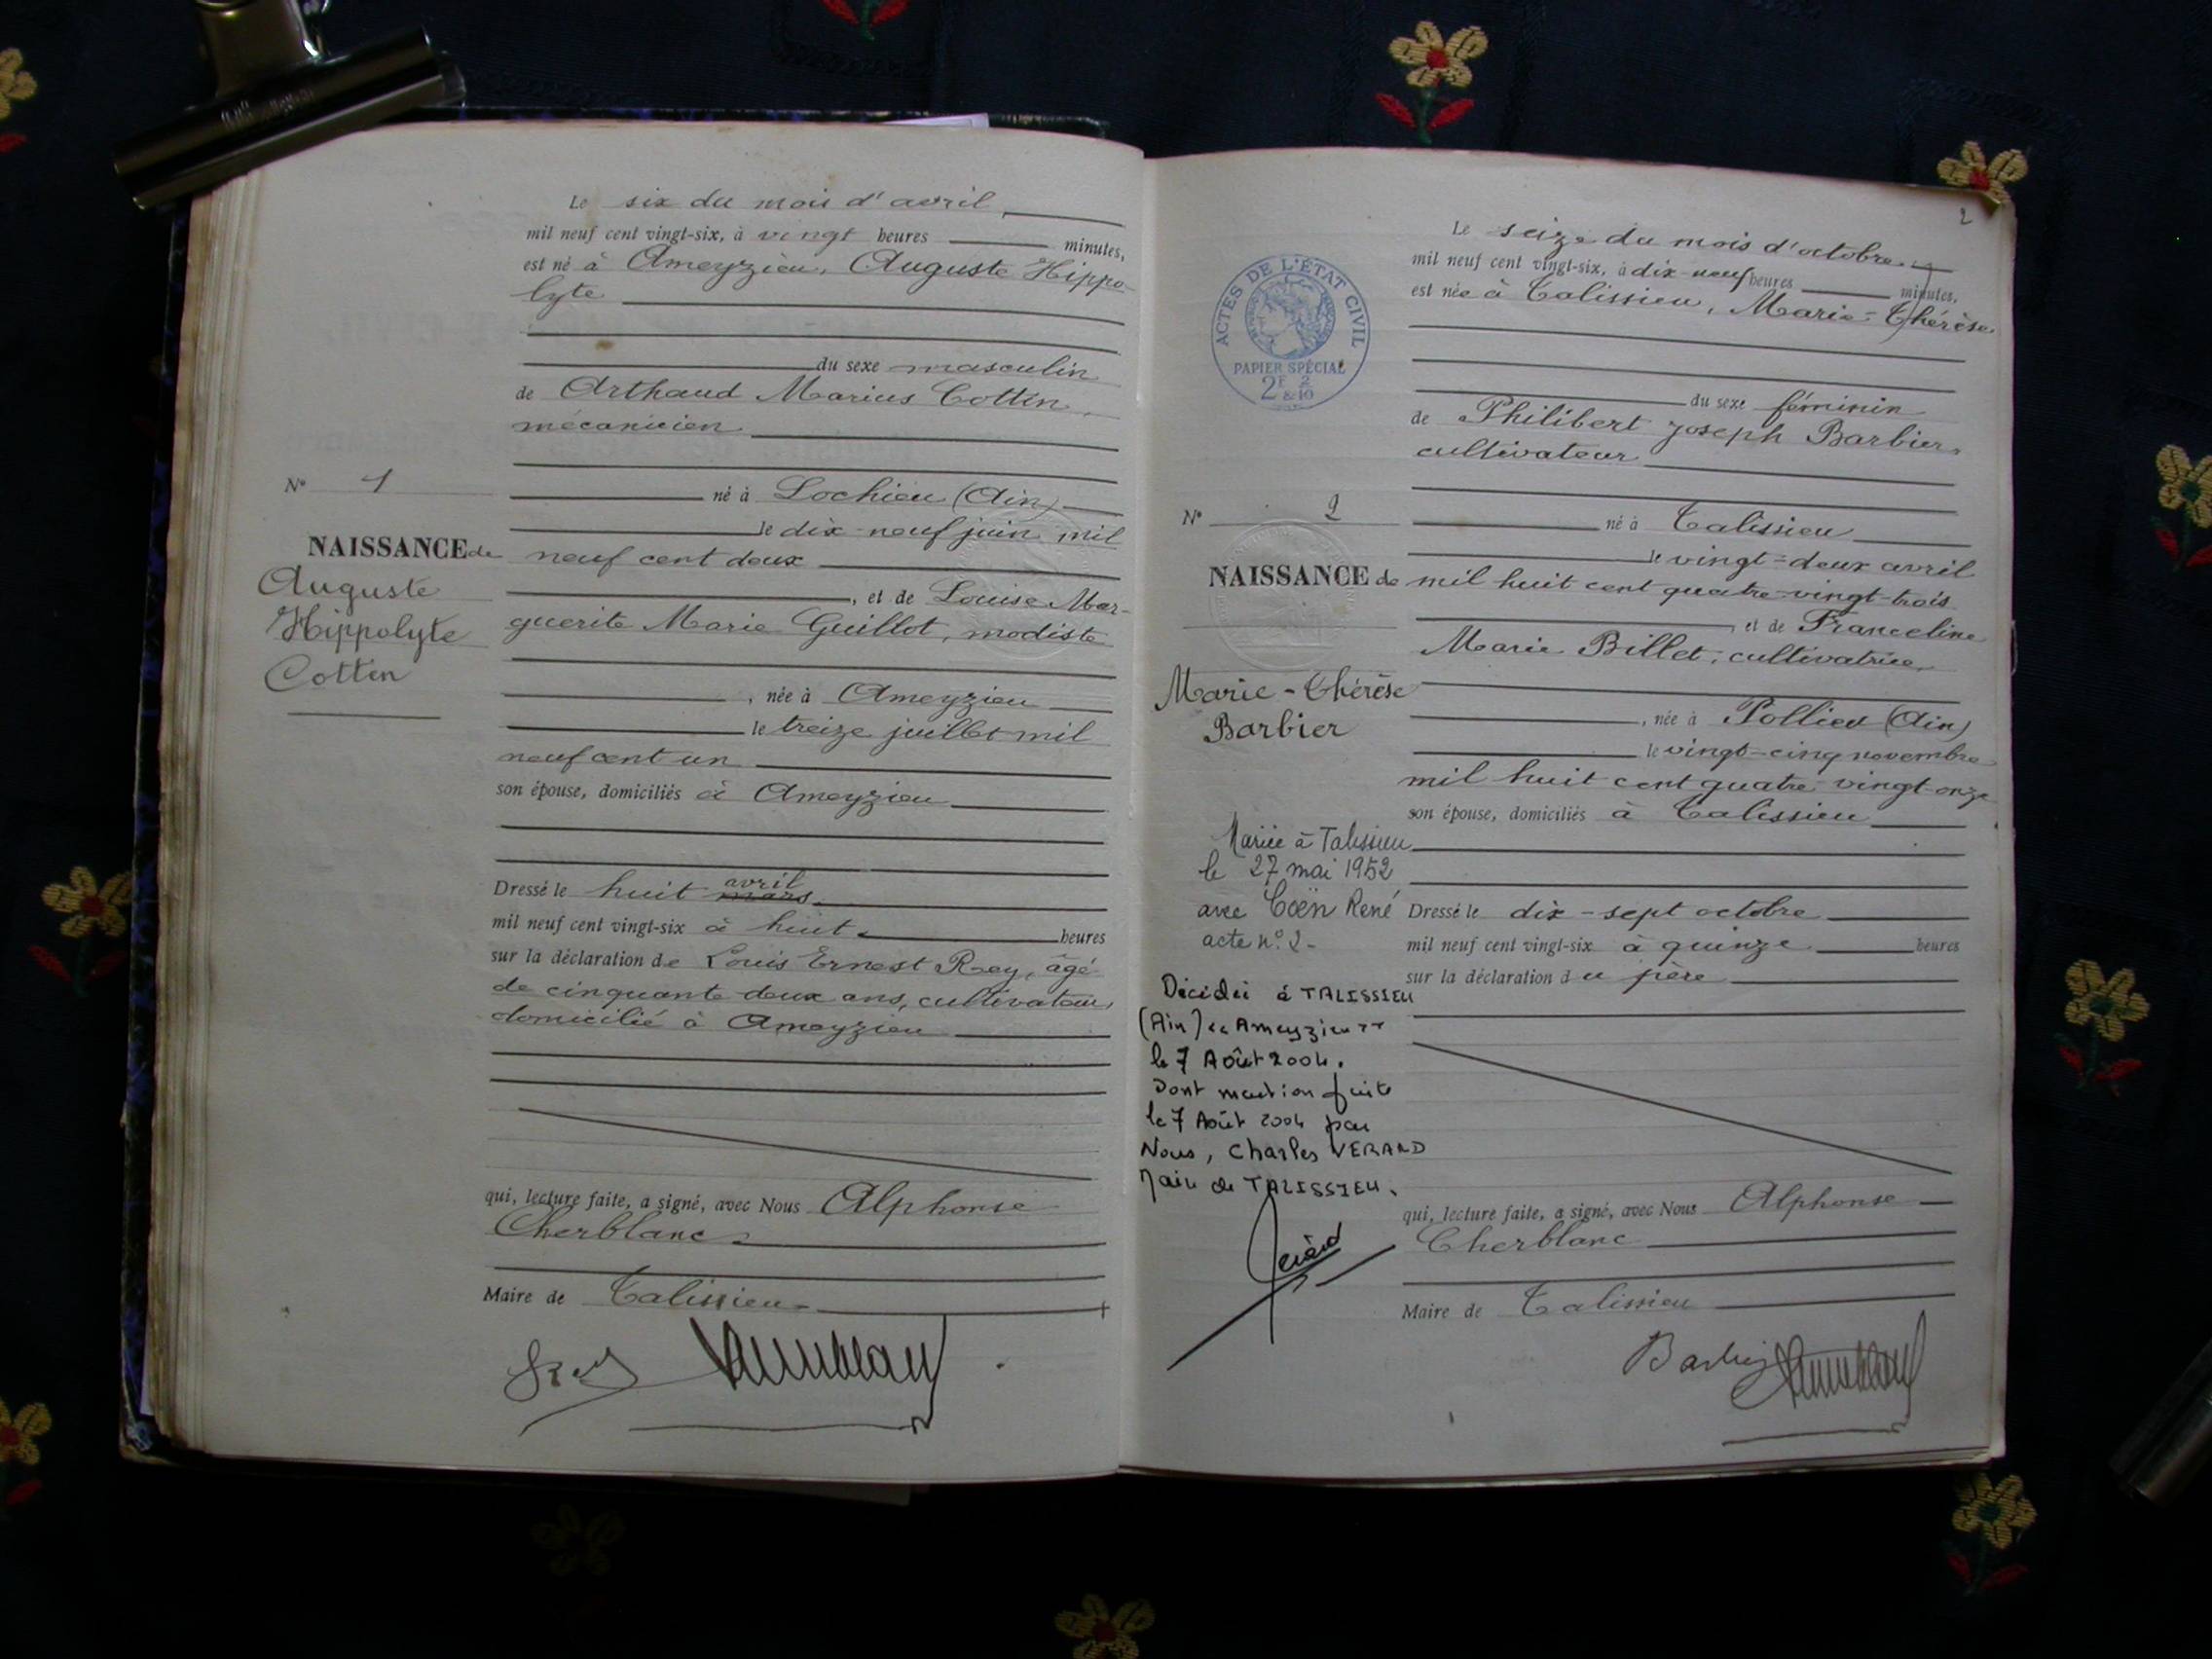 Le six du mois d'avril
mil neuf cent vingt-six, à vingt heures minutes,
est né à Ameyzieu, Auguste Hippo-
lyte
du sexe masculin
de Arthaud Marius Cottin,
mécanicien
N° 1
né à Lochieu (Ain)
le dix-neuf juin mil
NAISSANCE de
neuf cent deux
Auguste
Hippolyte
Cottin
, et de Louise Mar-
guerite Marie Guillot, modiste
, née à Ameyzieu
le treize juillet mil
neuf cent un
son épouse, domiciliés à Ameyzieu
Dressé le huit mars avril
mil neuf cent vingt-six à huit heures
sur la déclaration de Louis Ernest Rey, âgé
de cinquante deux ans, cultivateur,
domicilié à Ameyzieu
qui, lecture faite, a signé, avec Nous Alphonse
Cherblanc
Maire de Talissieu
2
ACTES DE L'ÉTAT CIVIL
PAPIER SPÉCIAL
2F & 2/10
Le seize du mois d'octobre
mil neuf cent vingt-six, à dix-neuf heures minutes,
est née à Talissieu, Marie-Thérèse
du sexe féminin
de Philibert Joseph Barbier,
cultivateur
N° 2
né à Talissieu
le vingt-deux avril
NAISSANCE de
mil huit cent quatre-vingt-trois
, et de Franceline
Marie Billet, cultivatrice,
Marie-Thérèse
Barbier
, née à Pollieu (Ain)
le vingt-cinq novembre
mil huit cent quatre vingt-onze
son épouse, domiciliés à Talissieu
Mariée à Talissieu
le 27 mai 1952
avec Coën René
acte n° 2-
Dressé le dix-sept octobre
mil neuf cent vingt-six à quinze heures
sur la déclaration du père
Décédée à TALISSIEU
(Ain) "Ameyzieu"
le 7 Août 2004.
Dont mention faite
le 7 Août 2004 par
Nous, Charles VERARD
Maire de TALISSIEU.
Verard
qui, lecture faite, a signé, avec Nous Alphonse
Cherblanc
Maire de Talissieu
Barbier